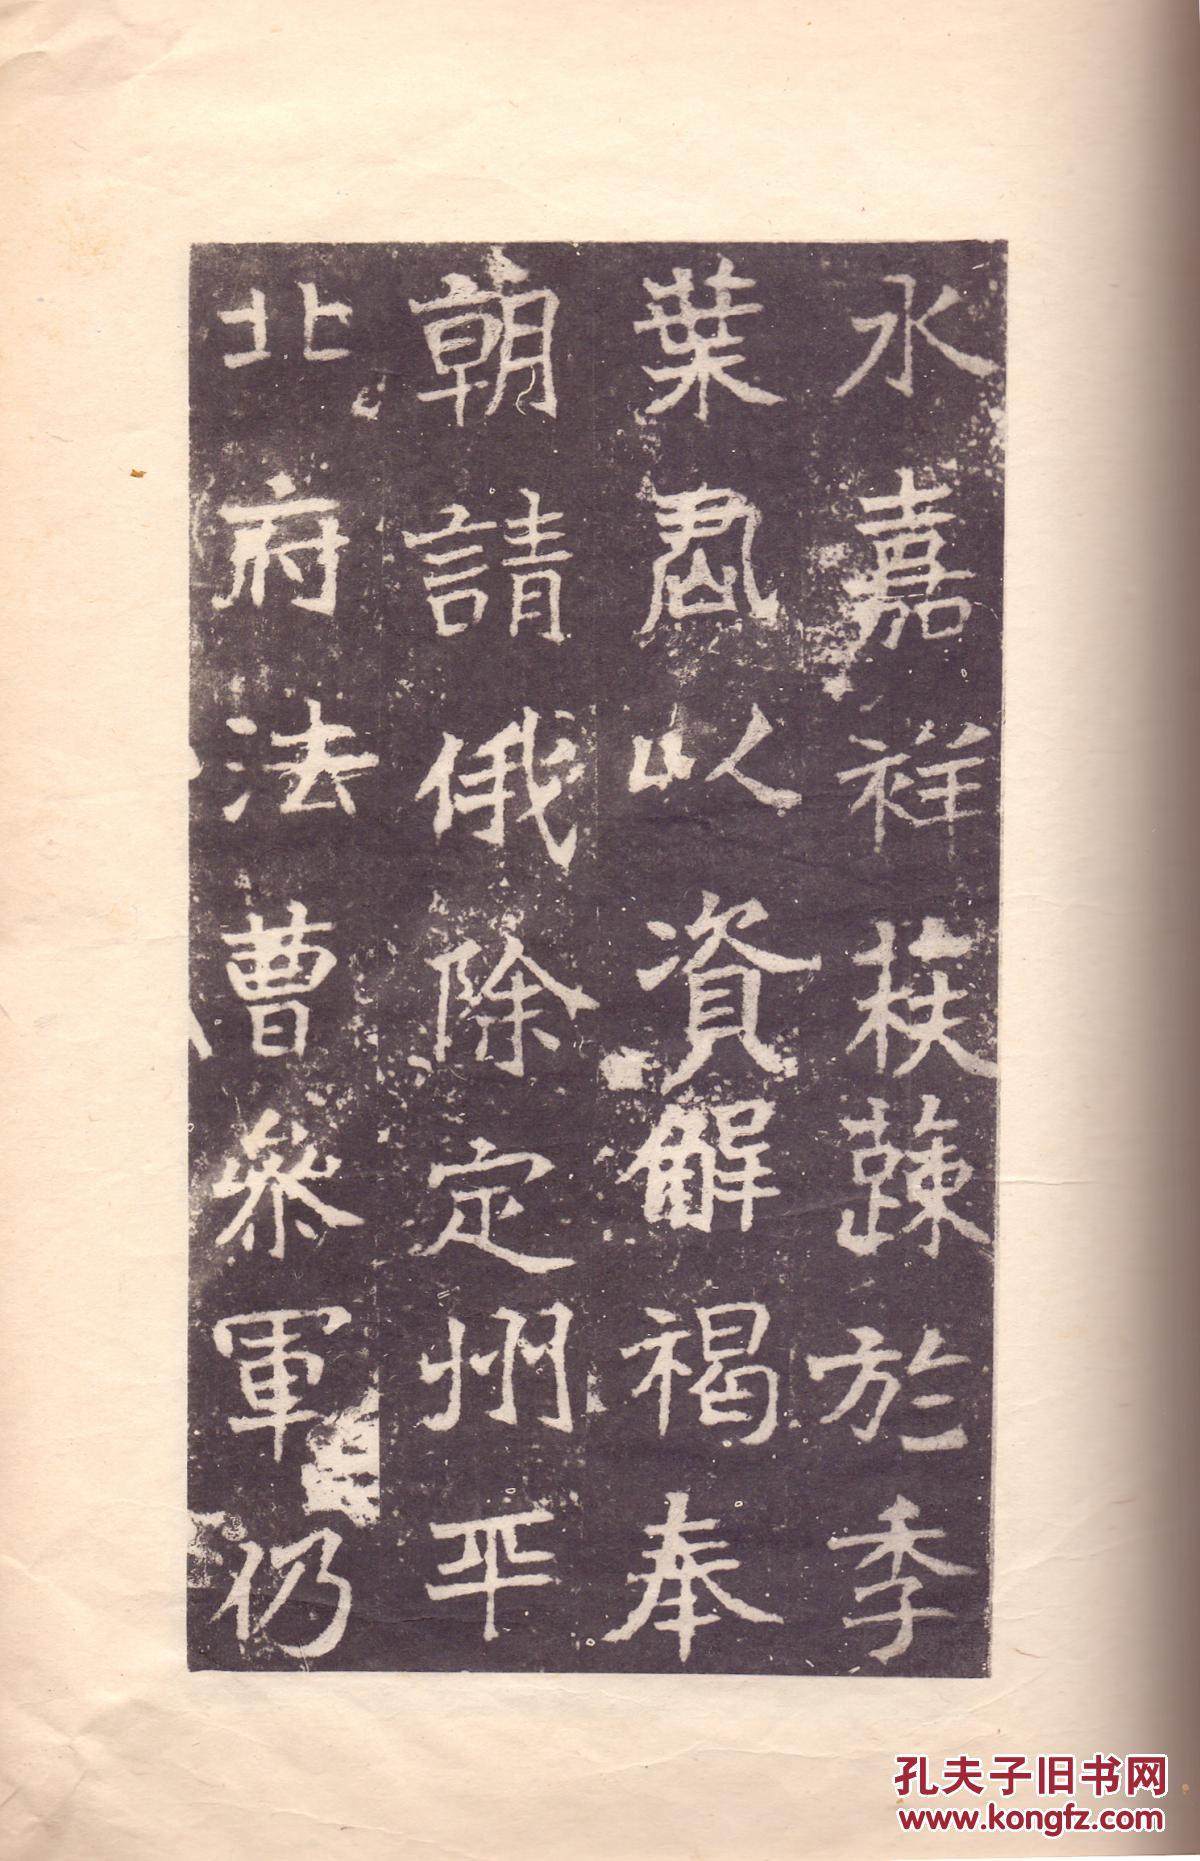 水嘉祥扶疎於季
葉君以資解褐奉
朝請俄除定州平
北府法曹參軍仍
孔夫子旧书网
www.kongfz.com